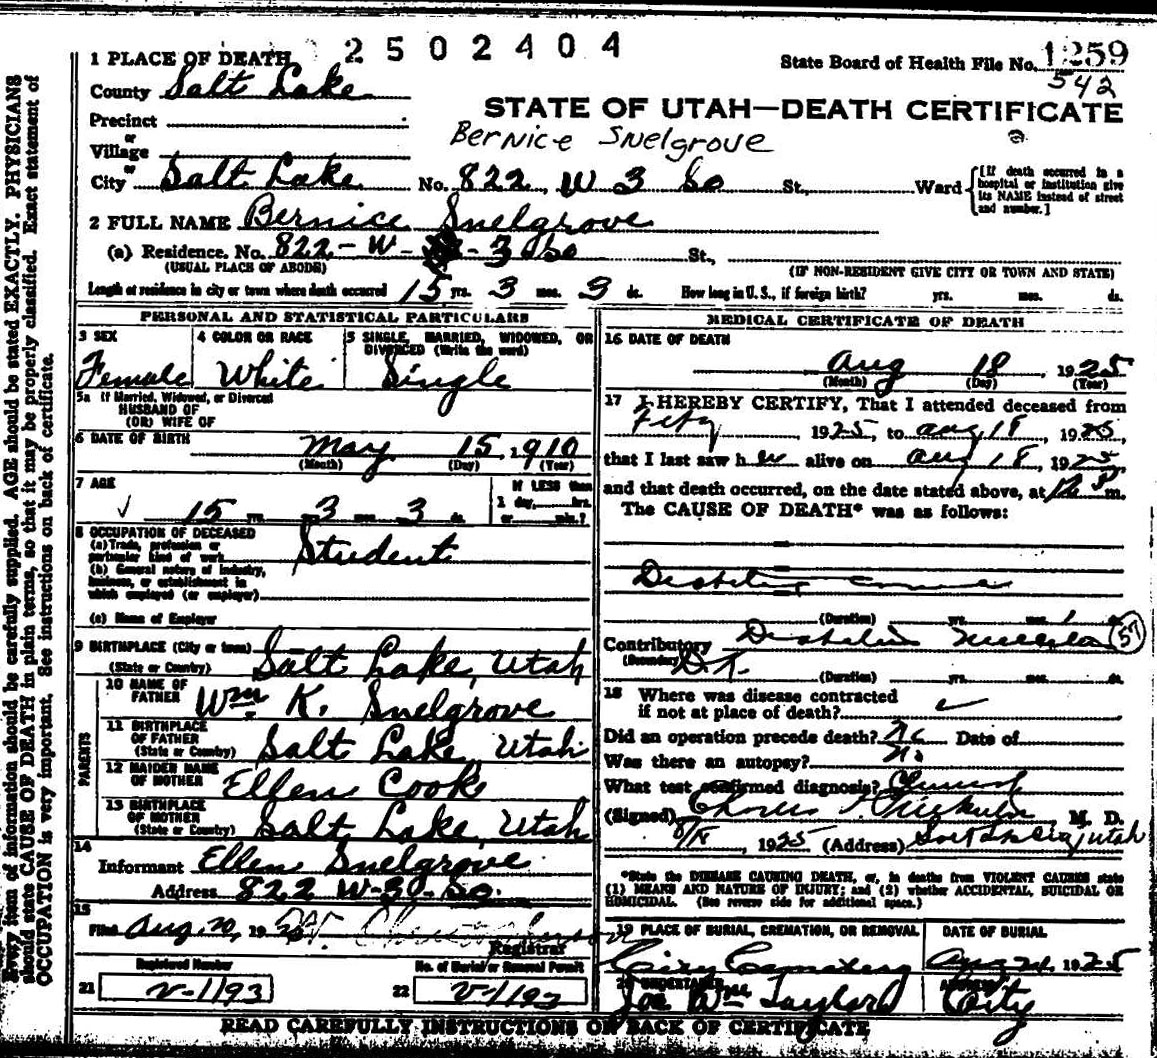 2502404
1 PLACE OF DEATH
State Board of Health File No. 1259
542
County Salt Lake
STATE OF UTAH—DEATH CERTIFICATE
Precinct
Bernice Snelgrove
or
Village
or
City Salt Lake No. 822, W 3 So St., Ward
[If death occurred in a hospital or institution give its NAME instead of street and number.]
2 FULL NAME Bernice Snelgrove
(a) Residence. No. 822-W- -3 So St.,
(USUAL PLACE OF ABODE) (IF NON-RESIDENT GIVE CITY OR TOWN AND STATE)
Length of residence in city or town where death occurred 15 yrs. 3 mos. 3 ds. How long in U. S., if foreign birth? yrs. mos. ds.
PERSONAL AND STATISTICAL PARTICULARS
3 SEX 4 COLOR OR RACE 5 SINGLE, MARRIED, WIDOWED, OR DIVORCED (Write the word)
Female White Single
5a If Married, Widowed, or Divorced
HUSBAND OF
(OR) WIFE OF
6 DATE OF BIRTH May 15, 1910
(Month) (Day) (Year)
7 AGE If LESS than
1 day, hrs.
15 yrs. 3 mos. 3 ds. or min.?
8 OCCUPATION OF DECEASED
(a) Trade, profession or
particular kind of work Student
(b) General nature of industry,
business, or establishment in
which employed (or employer)
(c) Name of Employer
9 BIRTHPLACE (City or town)
(State or Country) Salt Lake, Utah
10 NAME OF
FATHER Wm K. Snelgrove
11 BIRTHPLACE
OF FATHER
(State or Country) Salt Lake Utah
12 MAIDEN NAME
OF MOTHER Ellen Cook
13 BIRTHPLACE
OF MOTHER
(State or Country) Salt Lake, Utah
PARENTS
14
Informant Ellen Snelgrove
Address 822 W-3-So.
15
Filed Aug. 20, 19
Registrar
Registered Number No. of Burial or Removal Permit
21 V-1193 22 V-1193
MEDICAL CERTIFICATE OF DEATH
16 DATE OF DEATH
Aug 18 1925
(Month) (Day) (Year)
17 I HEREBY CERTIFY, That I attended deceased from
1925, to Aug 18, 1925,
that I last saw her alive on Aug 18, 1925
and that death occurred, on the date stated above, at 12 P m.
The CAUSE OF DEATH* was as follows:
Diabetic Coma
(Duration) yrs. mos. 1 ds.
Contributory Diabetes Mellitus 57
(Secondary) D.K.
(Duration) yrs. mos. ds.
18 Where was disease contracted
if not at place of death?
Did an operation precede death? No Date of
Was there an autopsy? No
What test confirmed diagnosis? Clinical
(Signed) M. D.
, 1925 (Address) Salt Lake City, Utah
*State the DISEASE CAUSING DEATH, or, in deaths from VIOLENT CAUSES state
(1) MEANS AND NATURE OF INJURY; and (2) whether ACCIDENTAL, SUICIDAL OR
HOMICIDAL. (See reverse side for additional space.)
19 PLACE OF BURIAL, CREMATION, OR REMOVAL DATE OF BURIAL
City Cemetery Aug 21, 1925
20 UNDERTAKER ADDRESS
Jos Wm Taylor City
READ CAREFULLY INSTRUCTIONS ON BACK OF CERTIFICATE
Every item of information should be carefully supplied. AGE should be stated EXACTLY. PHYSICIANS
should state CAUSE OF DEATH in plain terms, so that it may be properly classified. Exact statement of
OCCUPATION is very important. See instructions on back of certificate.